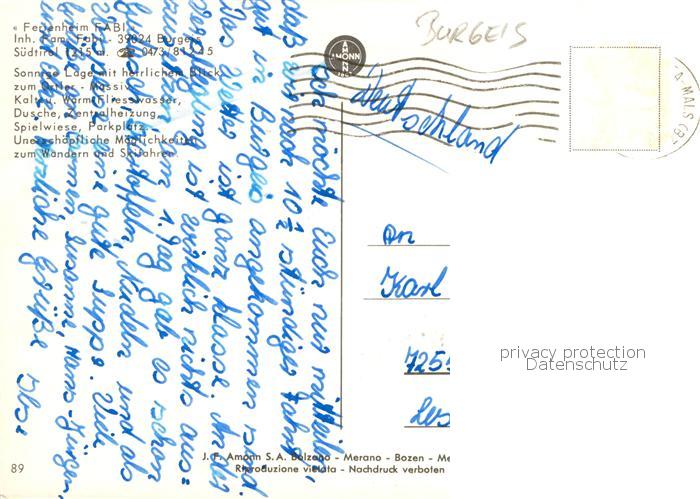 BURGEIS
« Ferienheim FABI »
Inh. Fam. Fabi - 39024 Burgeis
Südtirol 1215 m. ☎ 0473/81245
Sonnige Lage mit herrlichem Blick
zum Ortler - Massiv.
Kalt u. Warm Fliesswasser,
Dusche, Zentralheizung,
Spielwiese, Parkplatz.
Unerschöpfliche Möglichkeiten
zum Wandern und Skifahren.
AMONN
MALS
Deutschland
Ich möchte Euch nur mitteilen,
daß wir nach 10 ½ stündiger Fahrt
gut in Burgeis angekommen sind.
Das Wetter ist ganz klasse. An der
Verpflegung ist wirklich nichts aus=
zusetzen. Am 1. Tag gab es schon
Kartoffeln, Nudeln und als
eine gute Suppe. Viele
Susanne, Hans-Jürgen,
herzliche Grüße
Ilse
An
Karl
725
privacy protection
Datenschutz
J. F. Amonn S.A. Bolzano - Merano - Bozen - Me
Riproduzione vietata - Nachdruck verboten
89